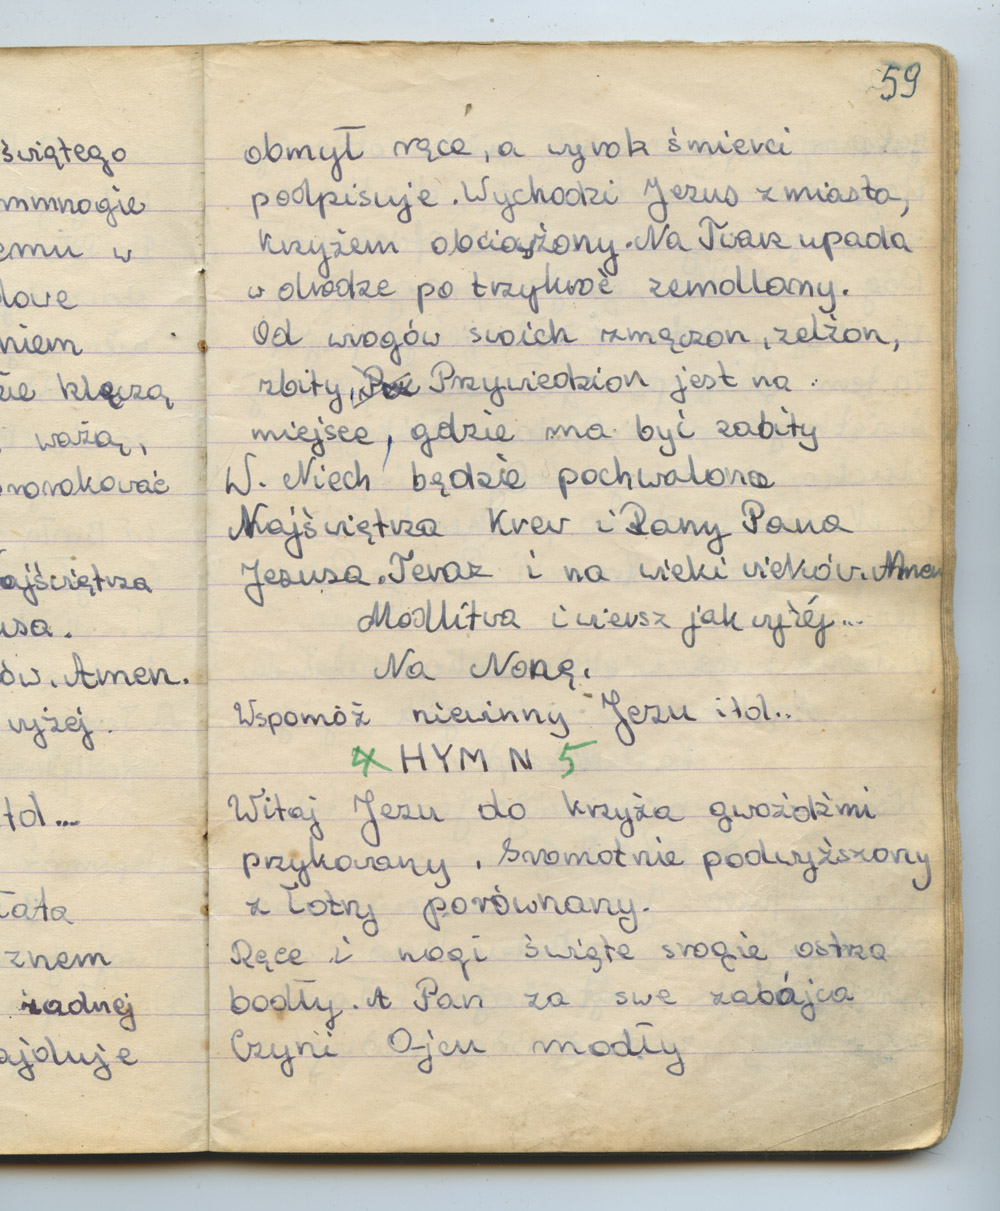 świątego
mmnogie
emu w
dowe
niem
że klęczą
ważą,
prorokować
Najświętsza
usa.
ów. Amen.
wyżej.
itd...
łata
znem
żadnej
ajduje
59
obmył ręce, a wyrok śmierci
podpisuje. Wychodzi Jezus z miasta,
krzyżem obciążony. Na Twarz upada
w drodze po trzykroć zemdlony.
Od wrogów swoich zmęczon, zelżon,
zbity, Przywiedzion jest na
miejsce, gdzie ma być zabity
W. Niech będzie pochwalona
Najświętsza Krew i Rany Pana
Jezusa. Teraz i na wieki wieków. Amen
Modlitwa i wiersz jak wyżéj...
Na Nonę.
Wspomóż niewinny Jezu itd..
4 HYMN 5
Witaj Jezu do krzyża gwoźdźmi
przykowany, Sromotnie podwyższony
z łotry porównany.
Ręce i nogi święte srogie ostrza
bodły. A Pan za swe zabójca
Czyni Ojcu modły